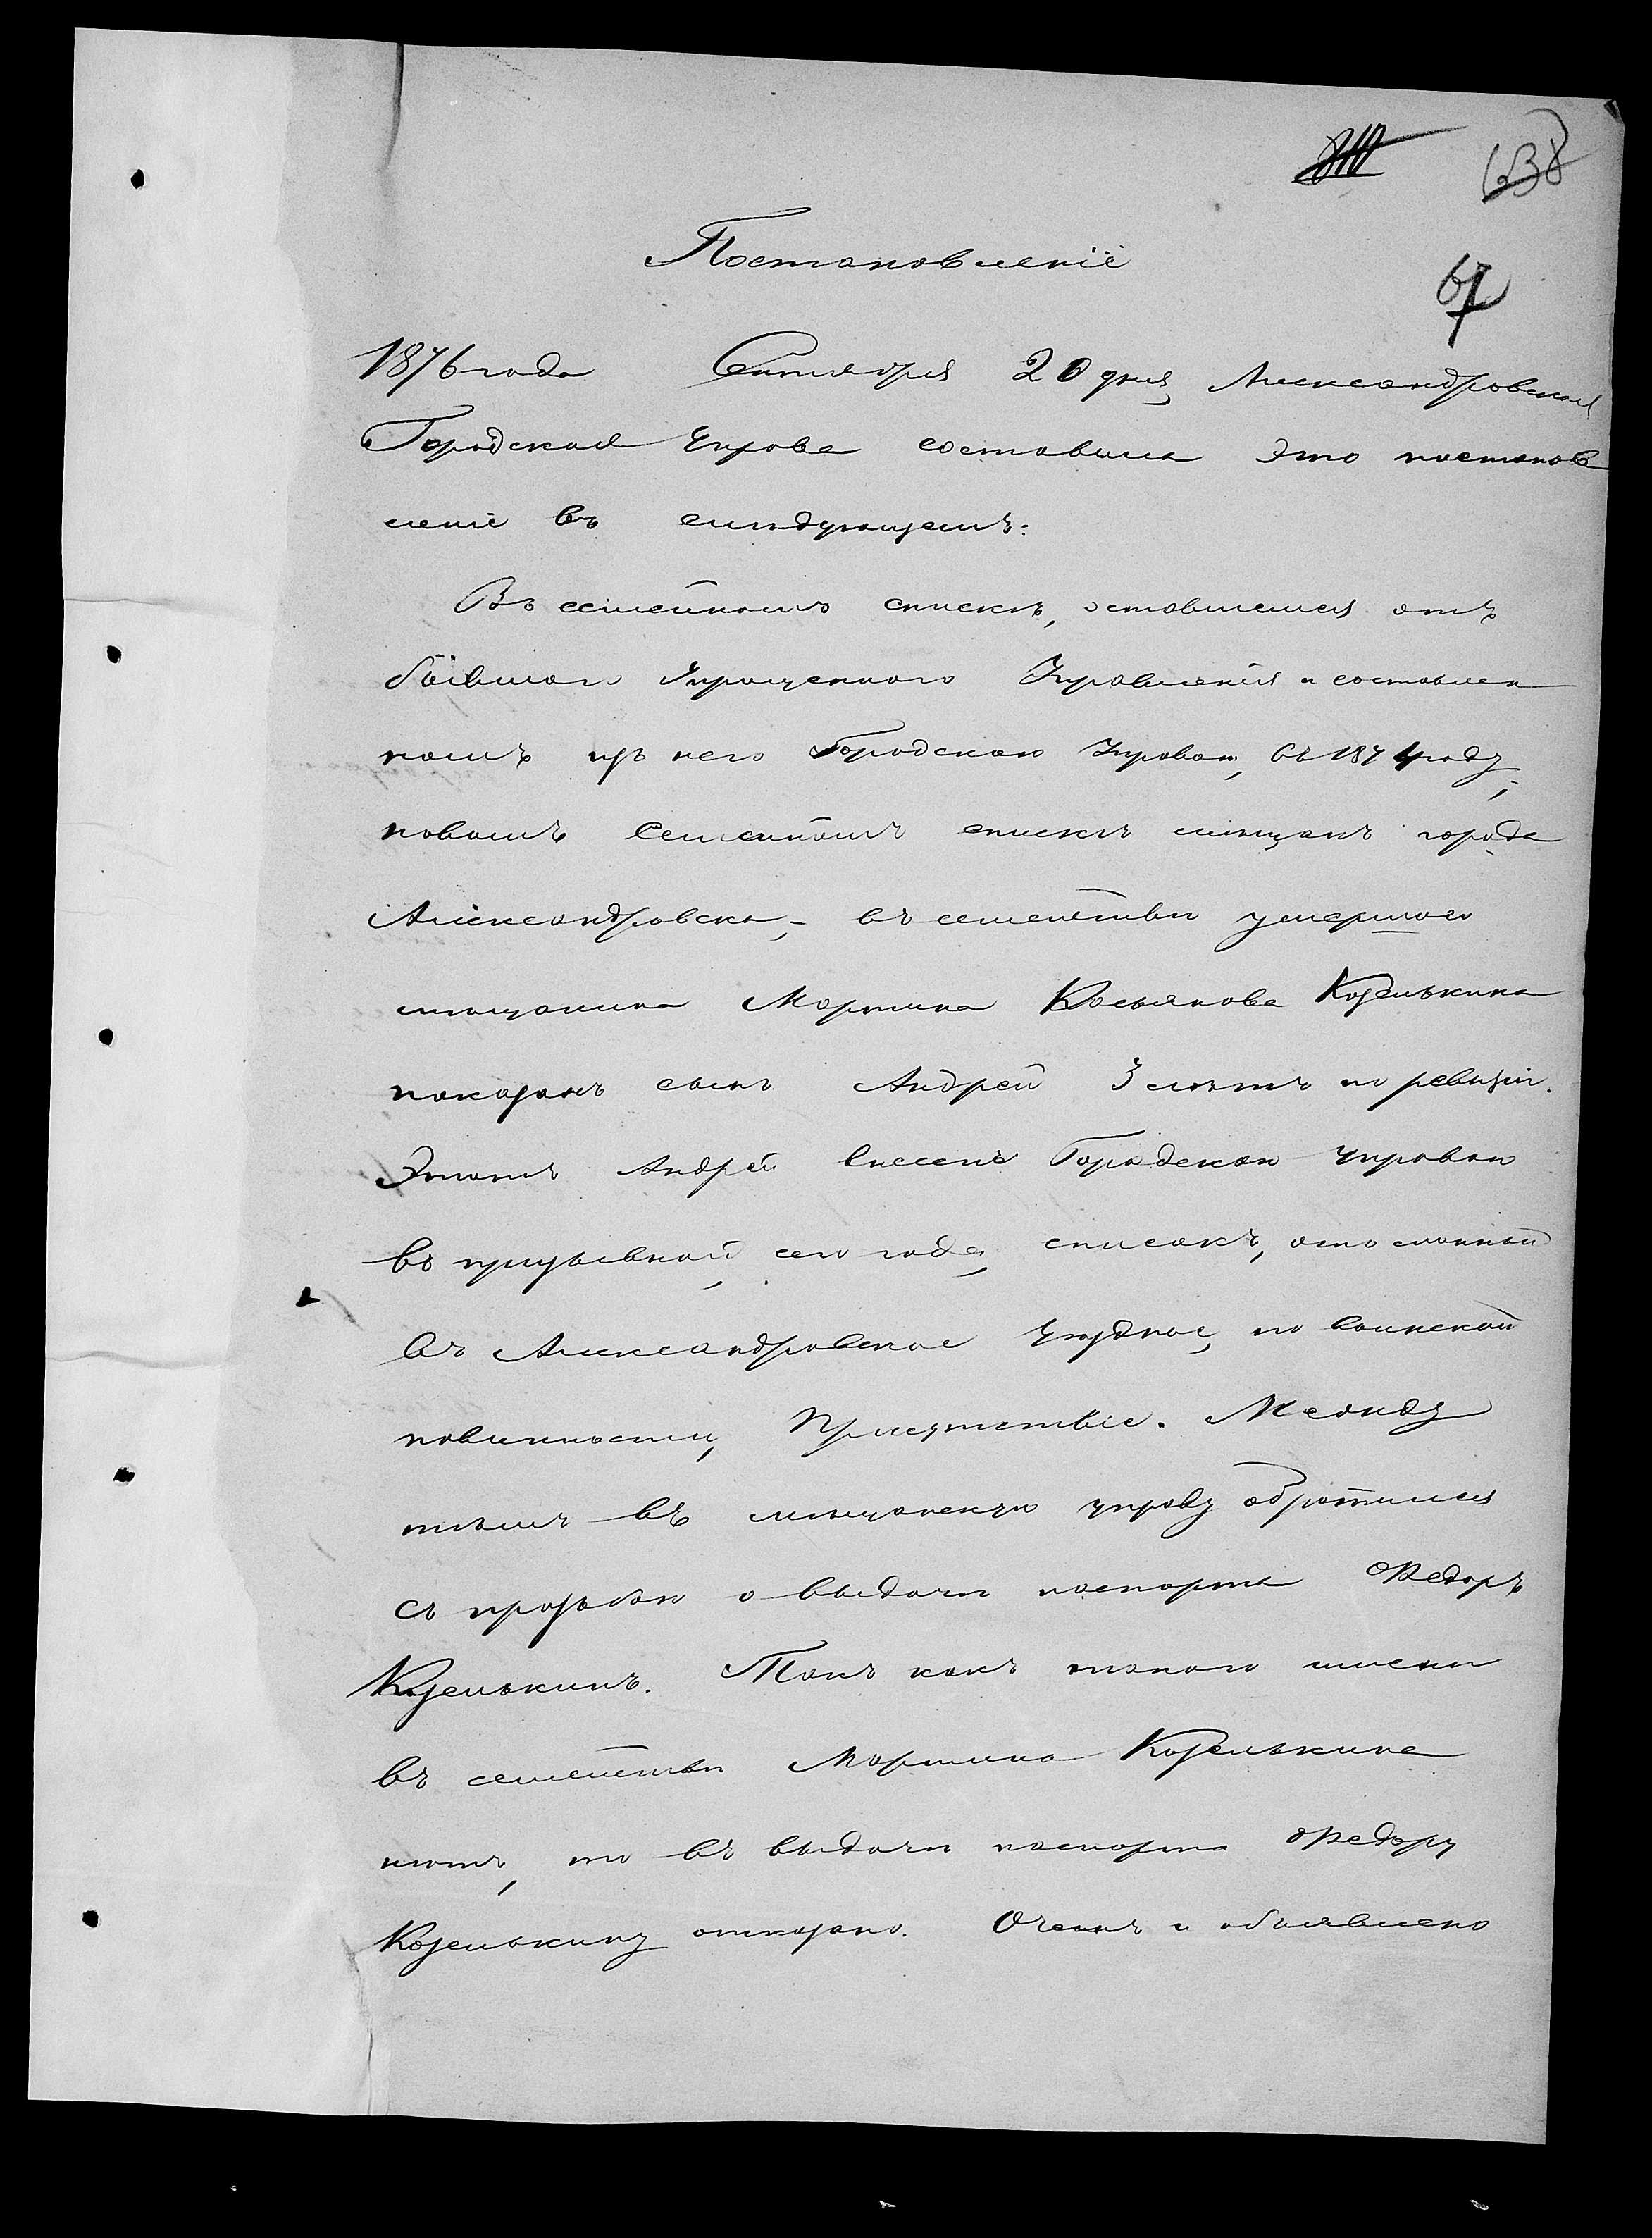 638
Постановленіе
67
1876 года Сентября 20 дня, Александровская
Городская Управа составила это постанов
леніе въ слѣдующемъ:
Въ семейномъ спискѣ, оставшемся отъ
бывшаго Упрощеннаго Управленія и составлен
номъ изъ него Городскою Управою, въ 1874 году,
новомъ Семейномъ спискѣ мѣщанъ города
Александровска, - въ семействѣ умершаго
мѣщанина Мартина Касьянова Козелькина
показанъ сынъ Андрей 3 лѣтъ по ревизіи.
Этотъ Андрей внесенъ Городскою Управою
въ призывной, сего года, списокъ, отосланный
въ Александровское Уѣздное, по воинской
повинности, Присутствіе. Между
тѣмъ въ мѣщанскую управу обратился
съ прозьбою о выдачи паспорта Ѳедоръ
Козелькинъ. Такъ какъ такого имени
въ семействѣ Мартина Козелькина
нѣтъ, то въ выдачи паспорта Ѳедору
Козелькину отказано. О чемъ и объявлено